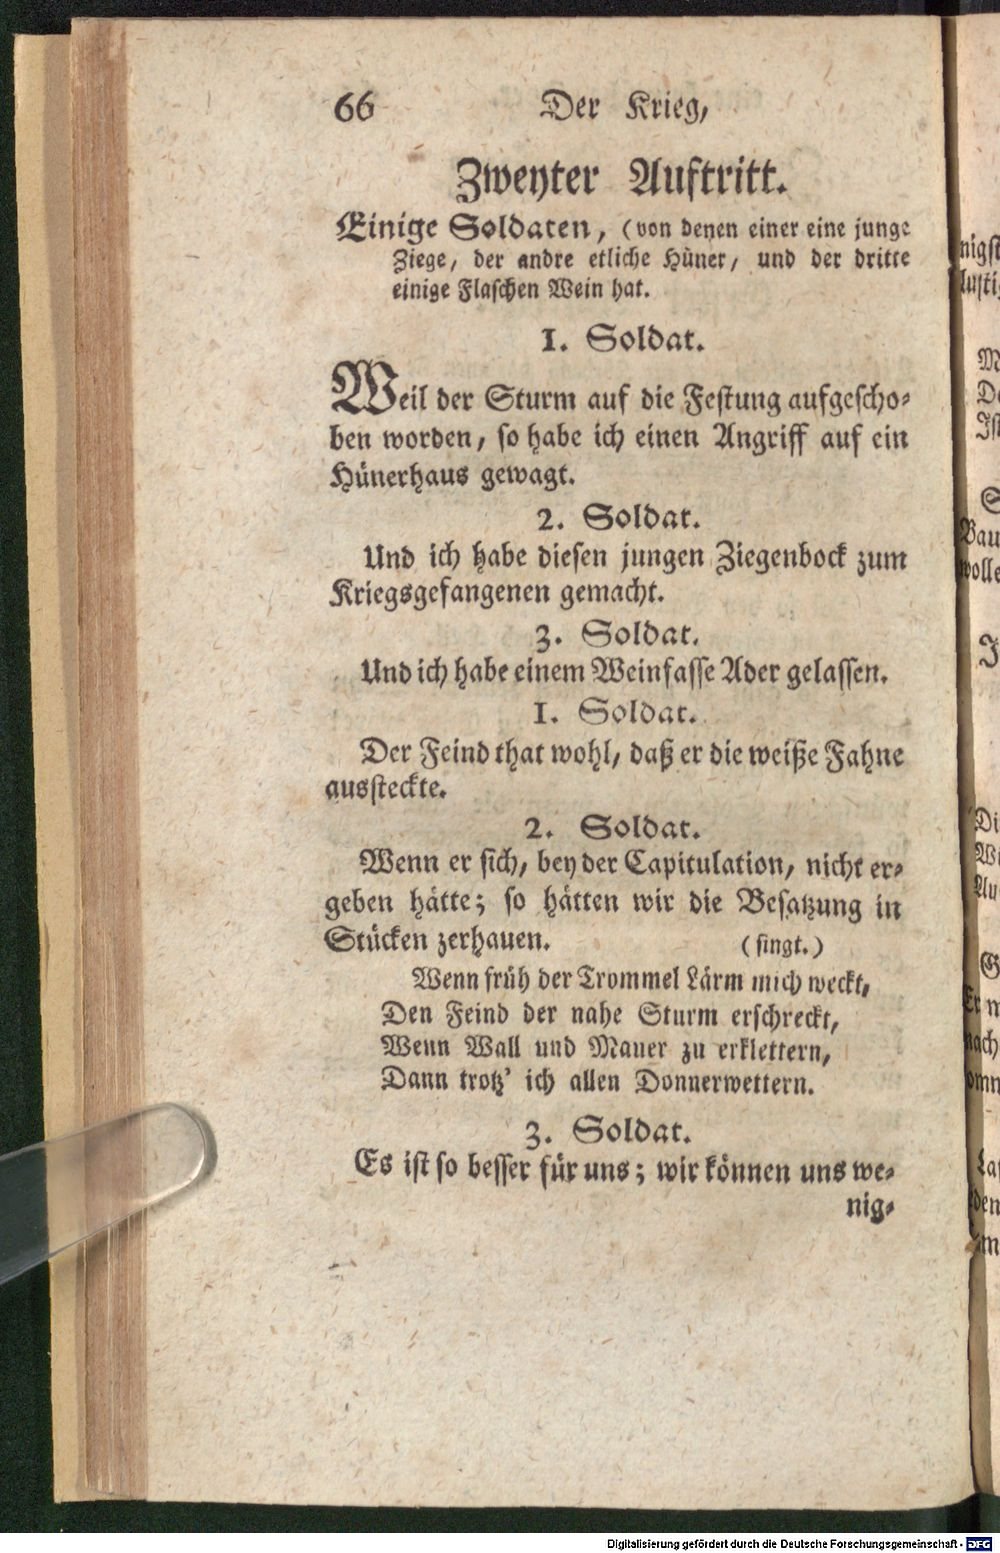 66 Der Krieg,
Zweyter Auftritt.
Einige Soldaten, (von denen einer eine junge
Ziege, der andre etliche Hüner, und der dritte
einige Flaschen Wein hat.
1. Soldat.
Weil der Sturm auf die Festung aufgescho-
ben worden, so habe ich einen Angriff auf ein
Hünerhaus gewagt.
2. Soldat.
Und ich habe diesen jungen Ziegenbock zum
Kriegsgefangenen gemacht.
3. Soldat.
Und ich habe einem Weinfasse Ader gelassen.
1. Soldat.
Der Feind that wohl, daß er die weiße Fahne
aussteckte.
2. Soldat.
Wenn er sich, bey der Capitulation, nicht er-
geben hätte; so hätten wir die Besatzung in
Stücken zerhauen. (singt.)
Wenn früh der Trommel Lärm mich weckt,
Den Feind der nahe Sturm erschreckt,
Wenn Wall und Mauer zu erklettern,
Dann trotz' ich allen Donnerwettern.
3. Soldat.
Es ist so besser für uns; wir können uns we-
nig-
Digitalisierung gefördert durch die Deutsche Forschungsgemeinschaft - DFG